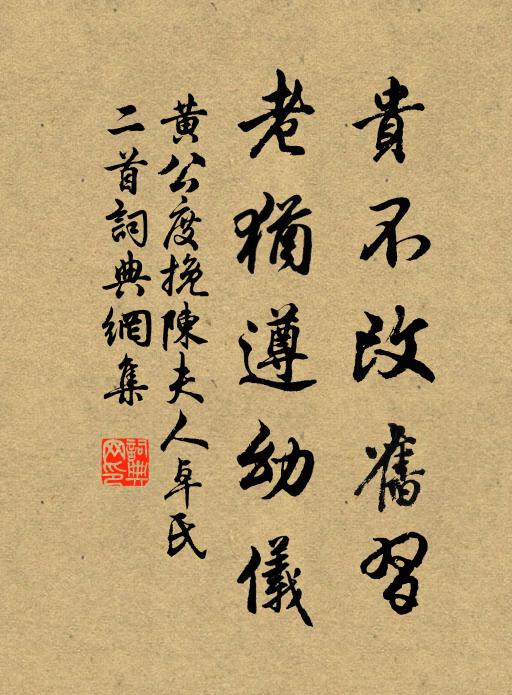 貴不改舊習
老猶遵幼儀
黃公度挽陳夫人卓氏
二首詞典網集
詞典
网印